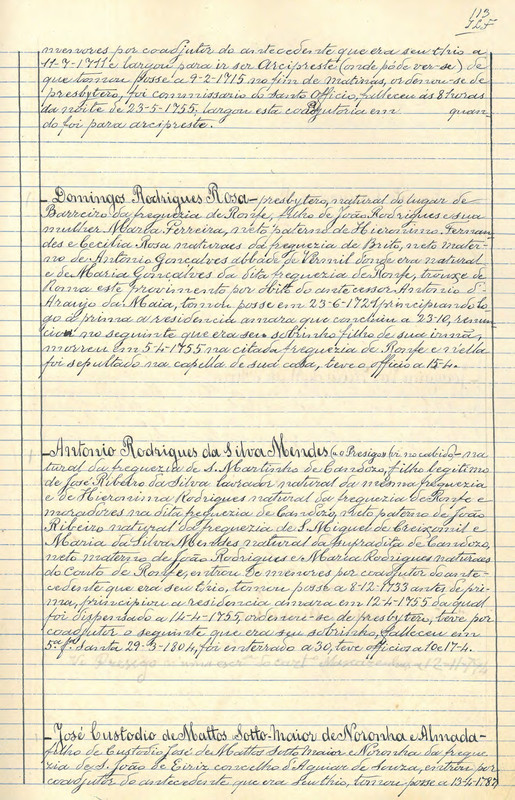 113
menores por coadjutor do antecedente que era seu thio a
11-7-1711 e largou para ir ser Arcipreste (onde póde ver-se) de
que tomou posse a 9-2-1715 no fim de matinas, ordenou-se de
presbytero, foi commissario do Santo Officio, falleceu ás 8 horas
da noite de 23-5-1755, largou esta coadjutoria em quan-
do foi para arcipreste.
Domingos Rodrigues Rosa - presbytero, natural do lugar de
Barreiro da freguezia de Ronfe, filho de João Rodrigues e sua
mulher Maria Ferreira, neto paterno de Hieronimo Fernan-
des e Cecilia Rosa naturaes da freguezia de Brito, neto mater-
no de Antonio Gonçalves abbade de Vermil donde era natural
e de Maria Gonçalves da dita freguezia de Ronfe, trouxe de
Roma este provimento por obito do antecessor Antonio d'
Araujo da Maia, tomou posse em 23-6-1721 principiando lo-
go a prima a residencia amara que concluiu a 23-10, renun-
ciou no seguinte que era seu sobrinho filho de sua irmã,
morreu em 5-4-1755 na citada freguezia de Ronfe e n'ella
foi sepultado na capella de sua casa, teve o officio a 15-4.
Antonio Rodrigues da Silva Mendes (o Presigo) foi no cabido - na-
tural da freguezia de S. Martinho de Candozo, filho legitimo
de José Ribeiro da Silva lavrador natural da mesma freguezia
e de Hieronima Rodrigues natural da freguezia de Ronfe e
moradores na dita freguezia de Candozo, neto paterno de João
Ribeiro natural da freguezia de S. Miguel de Creixomil e
Maria da Silva Mendes natural da supradita de Candozo,
neto materno de João Rodrigues e Maria Rodrigues naturaes
do Couto de Ronfe, entrou de menores por coadjutor do ante-
cedente que era seu thio, tomou posse a 8-12-1733 antes de pri-
ma, principiou a residencia amara em 12-4-1755 da qual
foi dispensado a 14-4-1755, ordenou-se de presbytero, teve por
coadjutor o seguinte que era seu sobrinho, falleceu em
5.ª f.ª Santa 29-3-1804, foi enterrado a 30, teve officios a 10 e 17-4.
José Custodio de Mattos Sotto-Maior de Noronha e Almada -
filho de Custodio José de Mattos Sotto Maior e Noronha da fregue-
zia de S. João de Eiriz concelho d'Aguiar de Souza, entrou por
coadjutor do antecedente que era seu thio, tomou posse a 13-4-1787